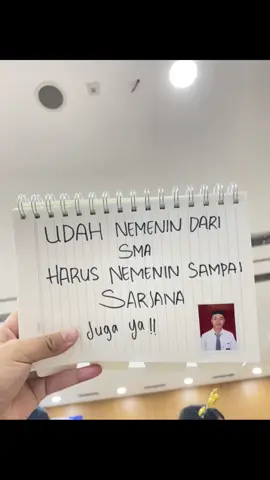 UDAH NEMENIN DARI
SMA
HARUS NEMENIN SAMPAI
SARJANA
Juga ya!!